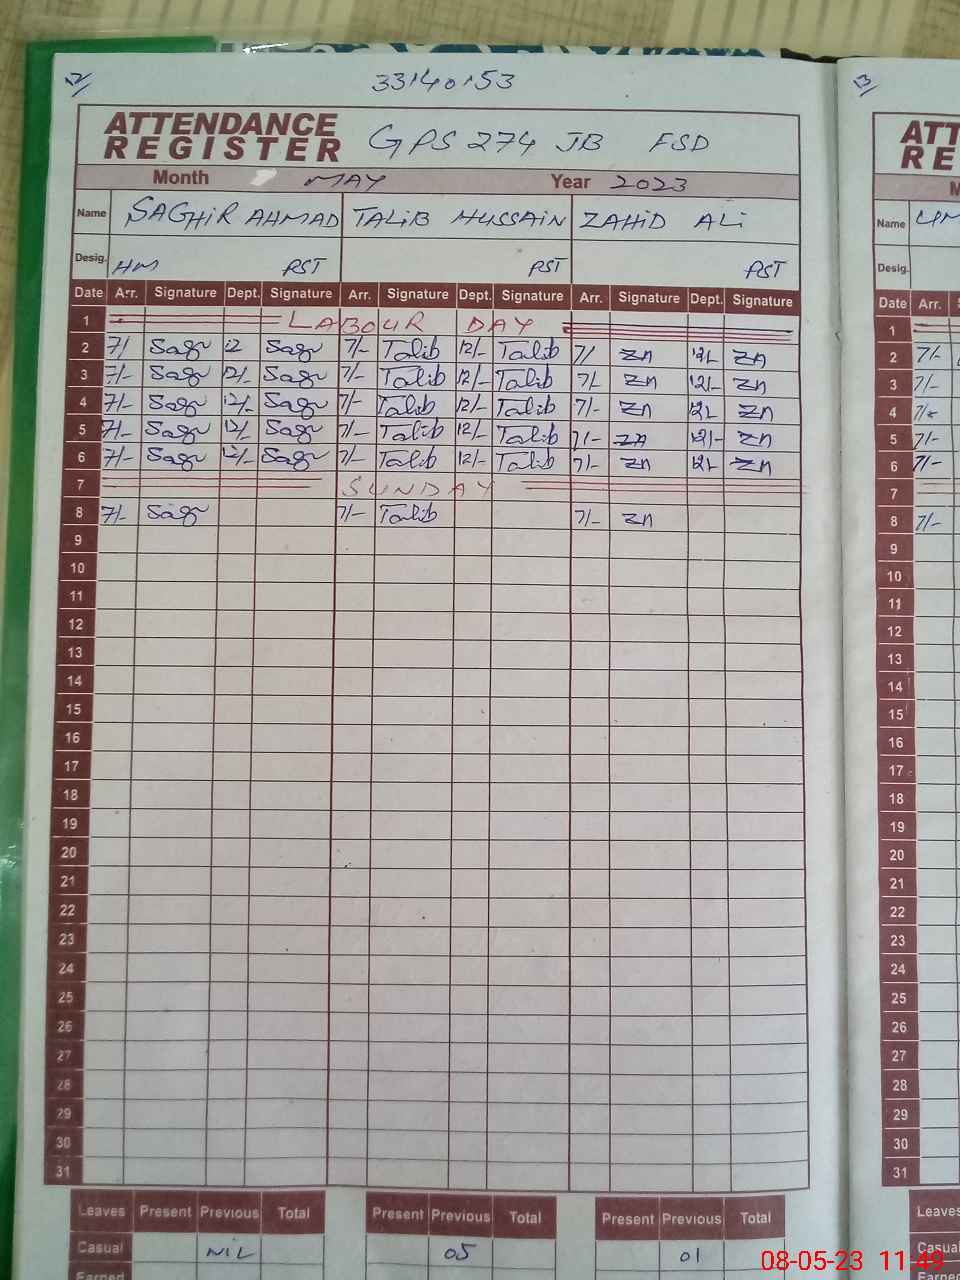 12/
33140153
13/
ATTENDANCE
REGISTER
GPS 274 JB FSD
ATT
RE
Month MAY Year 2023
M
Name SAGHIR AHMAD TALIB HUSSAIN ZAHID ALI
Name UM
Desig. HM PST PST PST
Desig.
Date Arr. Signature Dept. Signature Arr. Signature Dept. Signature Arr. Signature Dept. Signature
Date Arr. S
1 LABOUR DAY
1
2 7/- Sagr 12 Sagr 7/- Talib 12/- Talib 7/ ZA 12/- ZA
2 7/-
3 7/- Sagr 12/- Sagr 7/- Talib 12/- Talib 7/- ZA 12/- ZA
3 7/-
4 7/- Sagr 12/- Sagr 7/- Talib 12/- Talib 7/- ZA 12/- ZA
4 7/-
5 7/- Sagr 12/- Sagr 7/- Talib 12/- Talib 7/- ZA 12/- ZA
5 7/-
6 7/- Sagr 12/- Sagr 7/- Talib 12/- Talib 7/- ZA 12/- ZA
6 7/-
7 SUNDAY
7
8 7/- Sagr 7/- Talib 7/- ZA
8 7/-
9
9
10
10
11
11
12
12
13
13
14
14
15
15
16
16
17
17
18
18
19
19
20
20
21
21
22
22
23
23
24
24
25
25
26
26
27
27
28
28
29
29
30
30
31
31
Leaves Present Previous Total Present Previous Total Present Previous Total
Leaves
Casual NIL 05 01
Casual
Earned
Earned
08-05-23 11:49